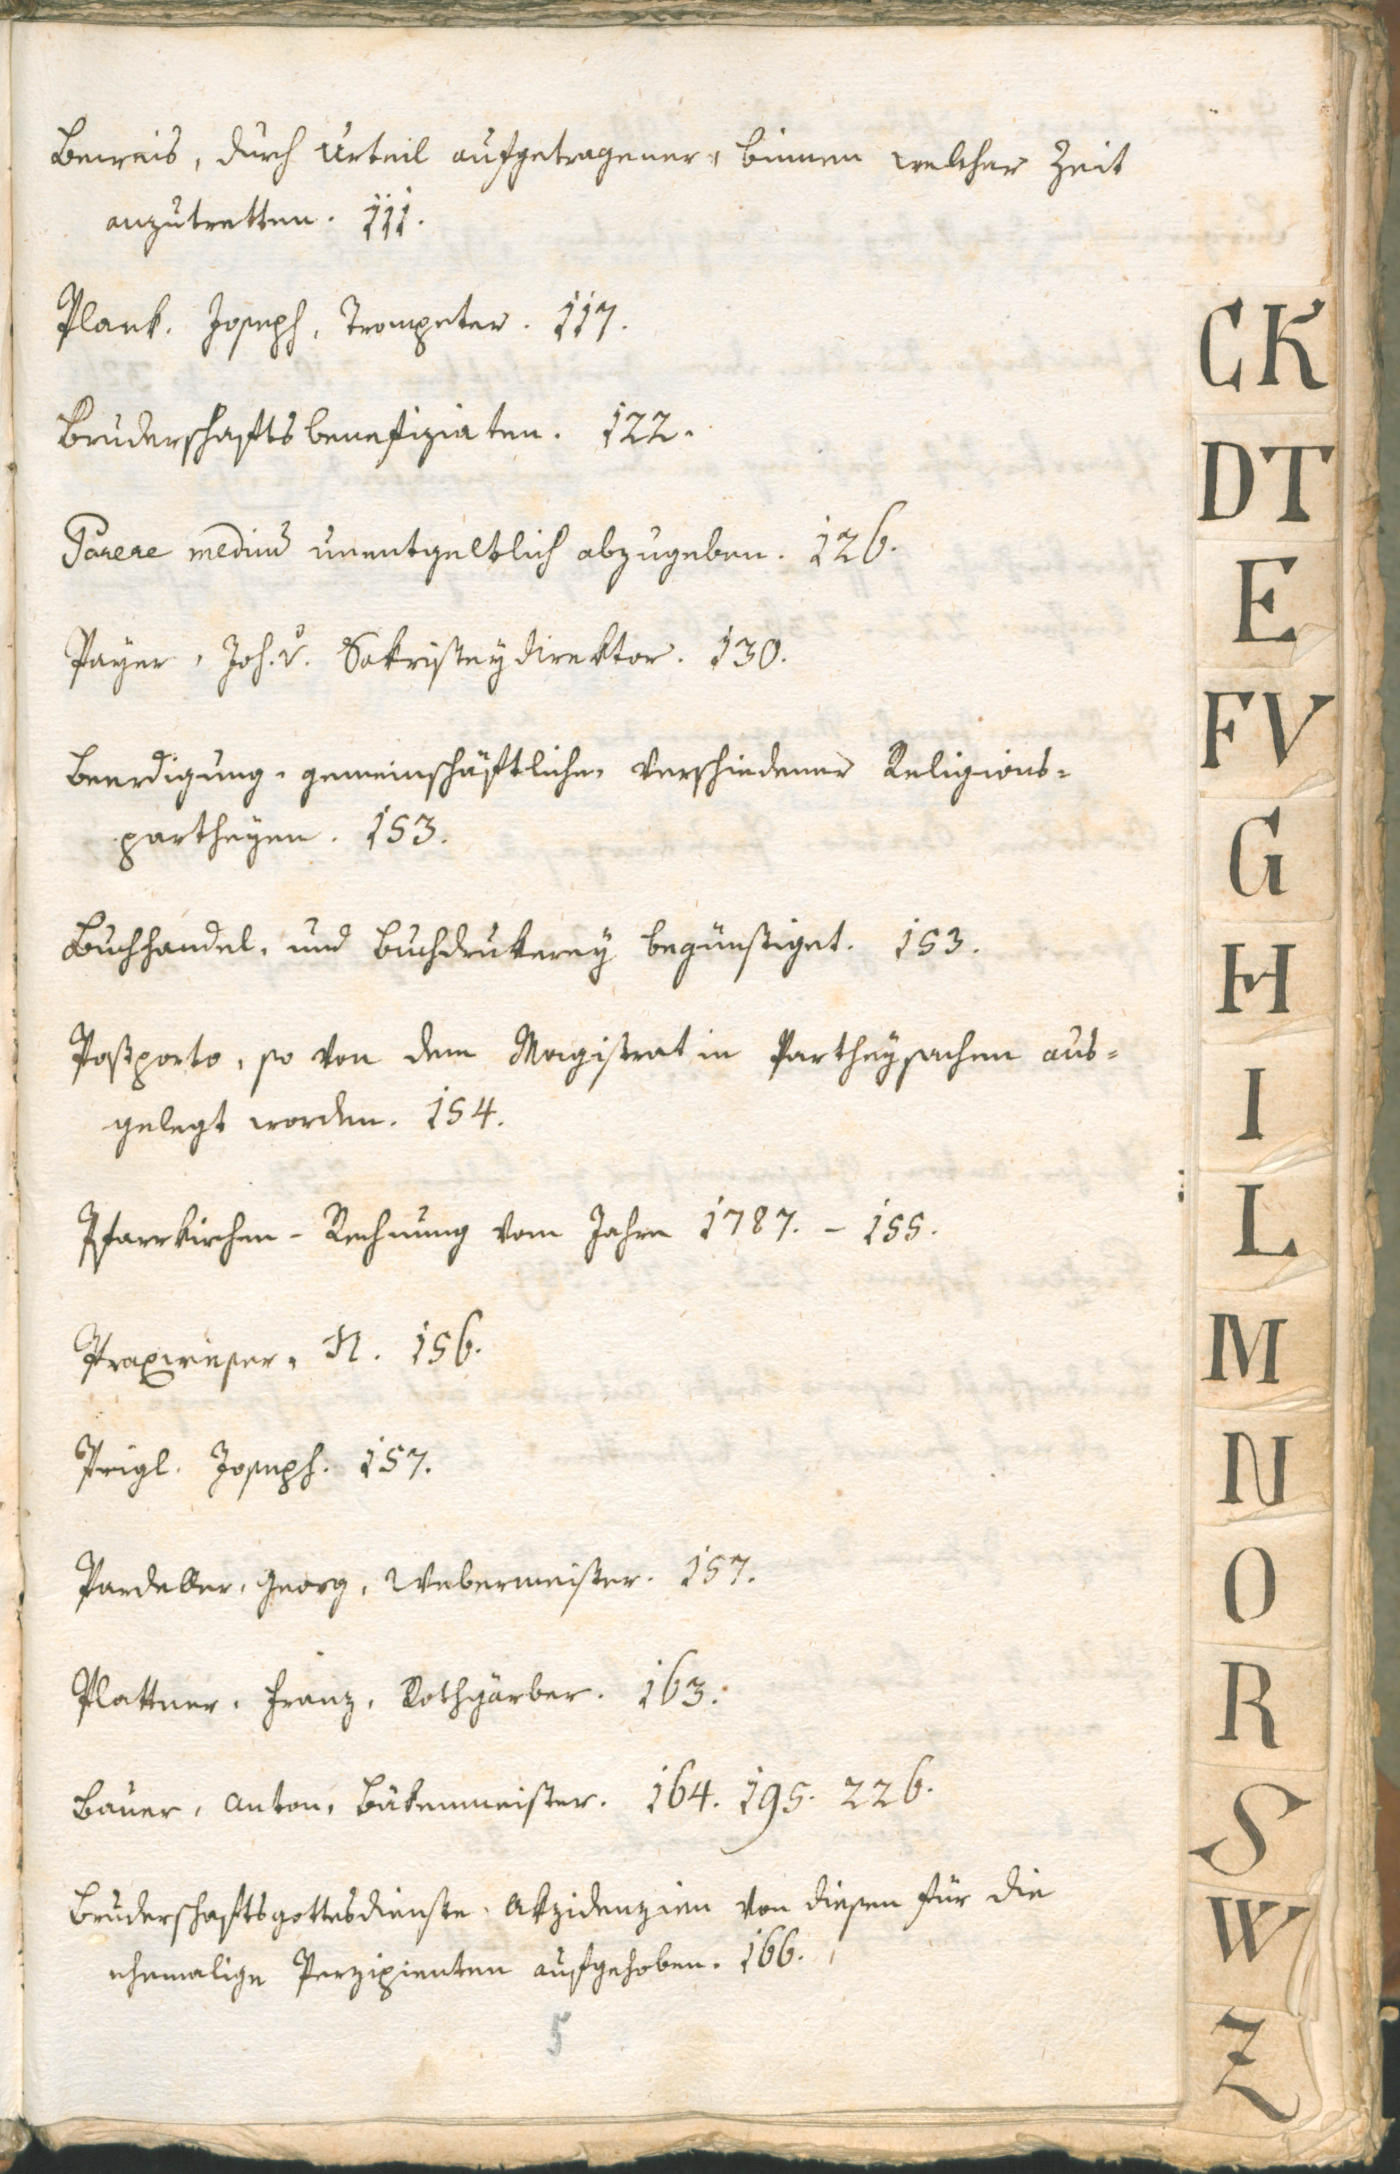 Beweis, durch Urteil aufgetragener, binnen welcher Zeit
anzutretten. 111.
Plank. Joseph, Trompeter. 117.
Bruderschaftsbenefiziaten. 122.
Parere medicũ unentgeltlich abzugeben. 126.
Payer, Joh. v. Sakristeydirektor. 130.
Beerdigung, gemeinschäftliche, verschiedener Religions=
partheyen. 153.
Buchhandel, und Buchdrukerey begünstiget. 153.
Postporto, so von dem Magistrat in Partheysachen aus=
gelegt worden. 154.
Pfarrkirchen-Rechnung vom Jahre 1787. - 155.
Praxwieser, N. 156.
Prigl. Joseph. 157.
Pardeller, Georg, Webermeister. 157.
Plattner, Franz, Rothgärber. 163.
Bauer, Anton, Bäkenmeister. 164. 195. 226.
Bruderschaftsgottesdienste, Akzidenzien von diesen für die
ehemalige Perzipienten aufgehoben. 166.
5
CK
DT
E
FV
G
H
I
L
M
N
O
R
S
W
Z